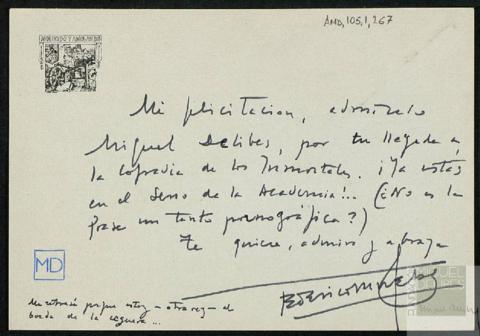 AMD,105,1,267
Mi felicitacion, admirado
Miguel Delibes, por tu llegada a
la Cofradia de los Inmortales. ¡Ya estás
en el Seno de la Academia!.. (¿No es la
frase un tanto pornográfica?)
Te quiere, admira y abraza
MD
porque estoy - otra vez - al
borde de la ceguera...
MIGUEL
DELIBES